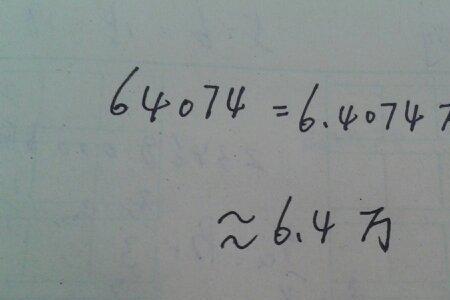 64074 = 6.4074
≈ 6.4 万